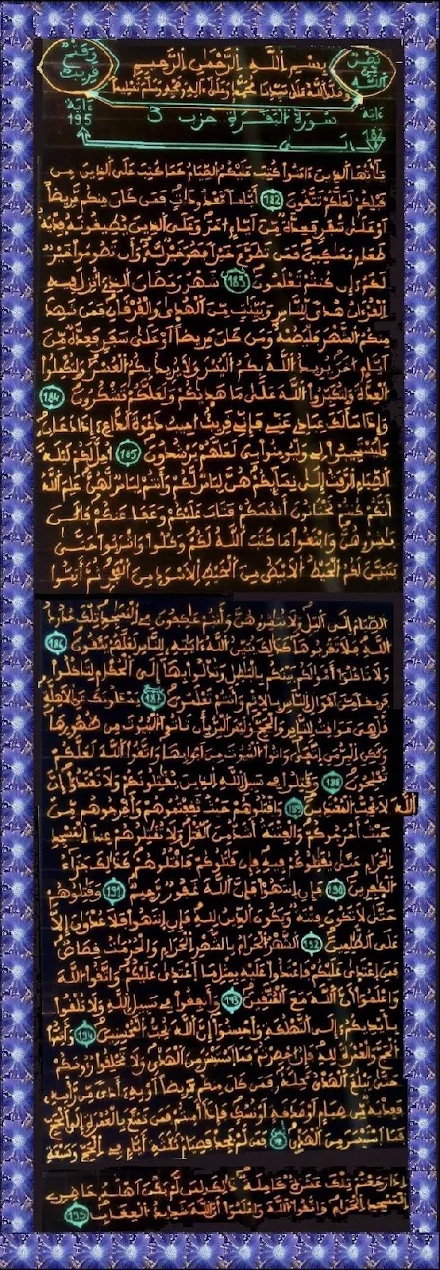 بسم الله الرحمن الرحيم
سورة البقرة حزب 3
ءاية 195
ءاية 182
يأيها الذين ءامنوا كتب عليكم الصيام كما كتب على الذين من
قبلكم لعلكم تتقون 182 أياما معدودات فمن كان منكم مريضا
أو على سفر فعدة من أيام أخر وعلى الذين يطيقونه فدية
طعام مسكين فمن تطوع خيرا فهو خير له وأن تصوموا خير
لكم إن كنتم تعلمون 183 شهر رمضان الذي أنزل فيه
القرءان هدى للناس وبينات من الهدى والفرقان فمن شهد
منكم الشهر فليصمه ومن كان مريضا أو على سفر فعدة من
أيام أخر يريد الله بكم اليسر ولا يريد بكم العسر ولتكملوا
العدة ولتكبروا الله على ما هديكم ولعلكم تشكرون 184
وإذا سألك عبادي عني فإني قريب أجيب دعوة الداع إذا دعان
فليستجيبوا لي وليؤمنوا بي لعلهم يرشدون 185 أحل لكم ليلة
الصيام الرفث إلى نسائكم هن لباس لكم وأنتم لباس لهن علم الله
أنكم كنتم تختانون أنفسكم فتاب عليكم وعفا عنكم فالن
باشروهن وابتغوا ما كتب الله لكم وكلوا واشربوا حتى
يتبين لكم الخيط الأبيض من الخيط الأسود من الفجر ثم أتموا
الصيام إلى اليل ولا تباشروهن وأنتم عاكفون في المساجد تلك حدود
الله فلا تقربوها كذلك يبين الله ءاياته للناس لعلهم يتقون 186
ولا تاكلوا أموالكم بينكم بالباطل وتدلوا بها إلى الحكام لتاكلوا
فريقا من أموال الناس بالإثم وأنتم تعلمون 187 يسئلونك عن الأهلة
قل هي مواقيت للناس والحج وليس البر بأن تاتوا البيوت من ظهورها
ولكن البر من اتقى واتوا البيوت من أبوابها واتقوا الله لعلكم
تفلحون 188 وقاتلوا في سبيل الله الذين يقاتلونكم ولا تعتدوا إن
الله لا يحب المعتدين 189 واقتلوهم حيث ثقفتموهم وأخرجوهم من
حيث أخرجوكم والفتنة أشد من القتل ولا تقاتلوهم عند المسجد
الحرام حتى يقاتلوكم فيه فإن قاتلوكم فاقتلوهم كذلك جزاء
الكافرين 190 فإن انتهوا فإن الله غفور رحيم 191 وقاتلوهم
حتى لا تكون فتنة ويكون الدين لله فإن انتهوا فلا عدوان إلا
على الظالمين 192 الشهر الحرام بالشهر الحرام والحرمات قصاص
فمن اعتدى عليكم فاعتدوا عليه بمثل ما اعتدى عليكم واتقوا الله
واعلموا أن الله مع المتقين 193 وأنفقوا في سبيل الله ولا تلقوا
بأيديكم إلى التهلكة وأحسنوا إن الله يحب المحسنين 194 وأتموا
الحج والعمرة لله فإن أحصرتم فما استيسر من الهدي ولا تحلقوا رءوسكم
حتى يبلغ الهدي محله فمن كان منكم مريضا أو به أذى من رأسه
ففدية من صيام أو صدقة أو نسك فإذا أمنتم فمن تمتع بالعمرة إلى الحج
فما استيسر من الهدي فمن لم يجد فصيام ثلاثة أيام في الحج وسبعة
إذا رجعتم تلك عشرة كاملة ذلك لمن لم يكن أهله حاضري
المسجد الحرام واتقوا الله واعلموا أن الله شديد العقاب 195